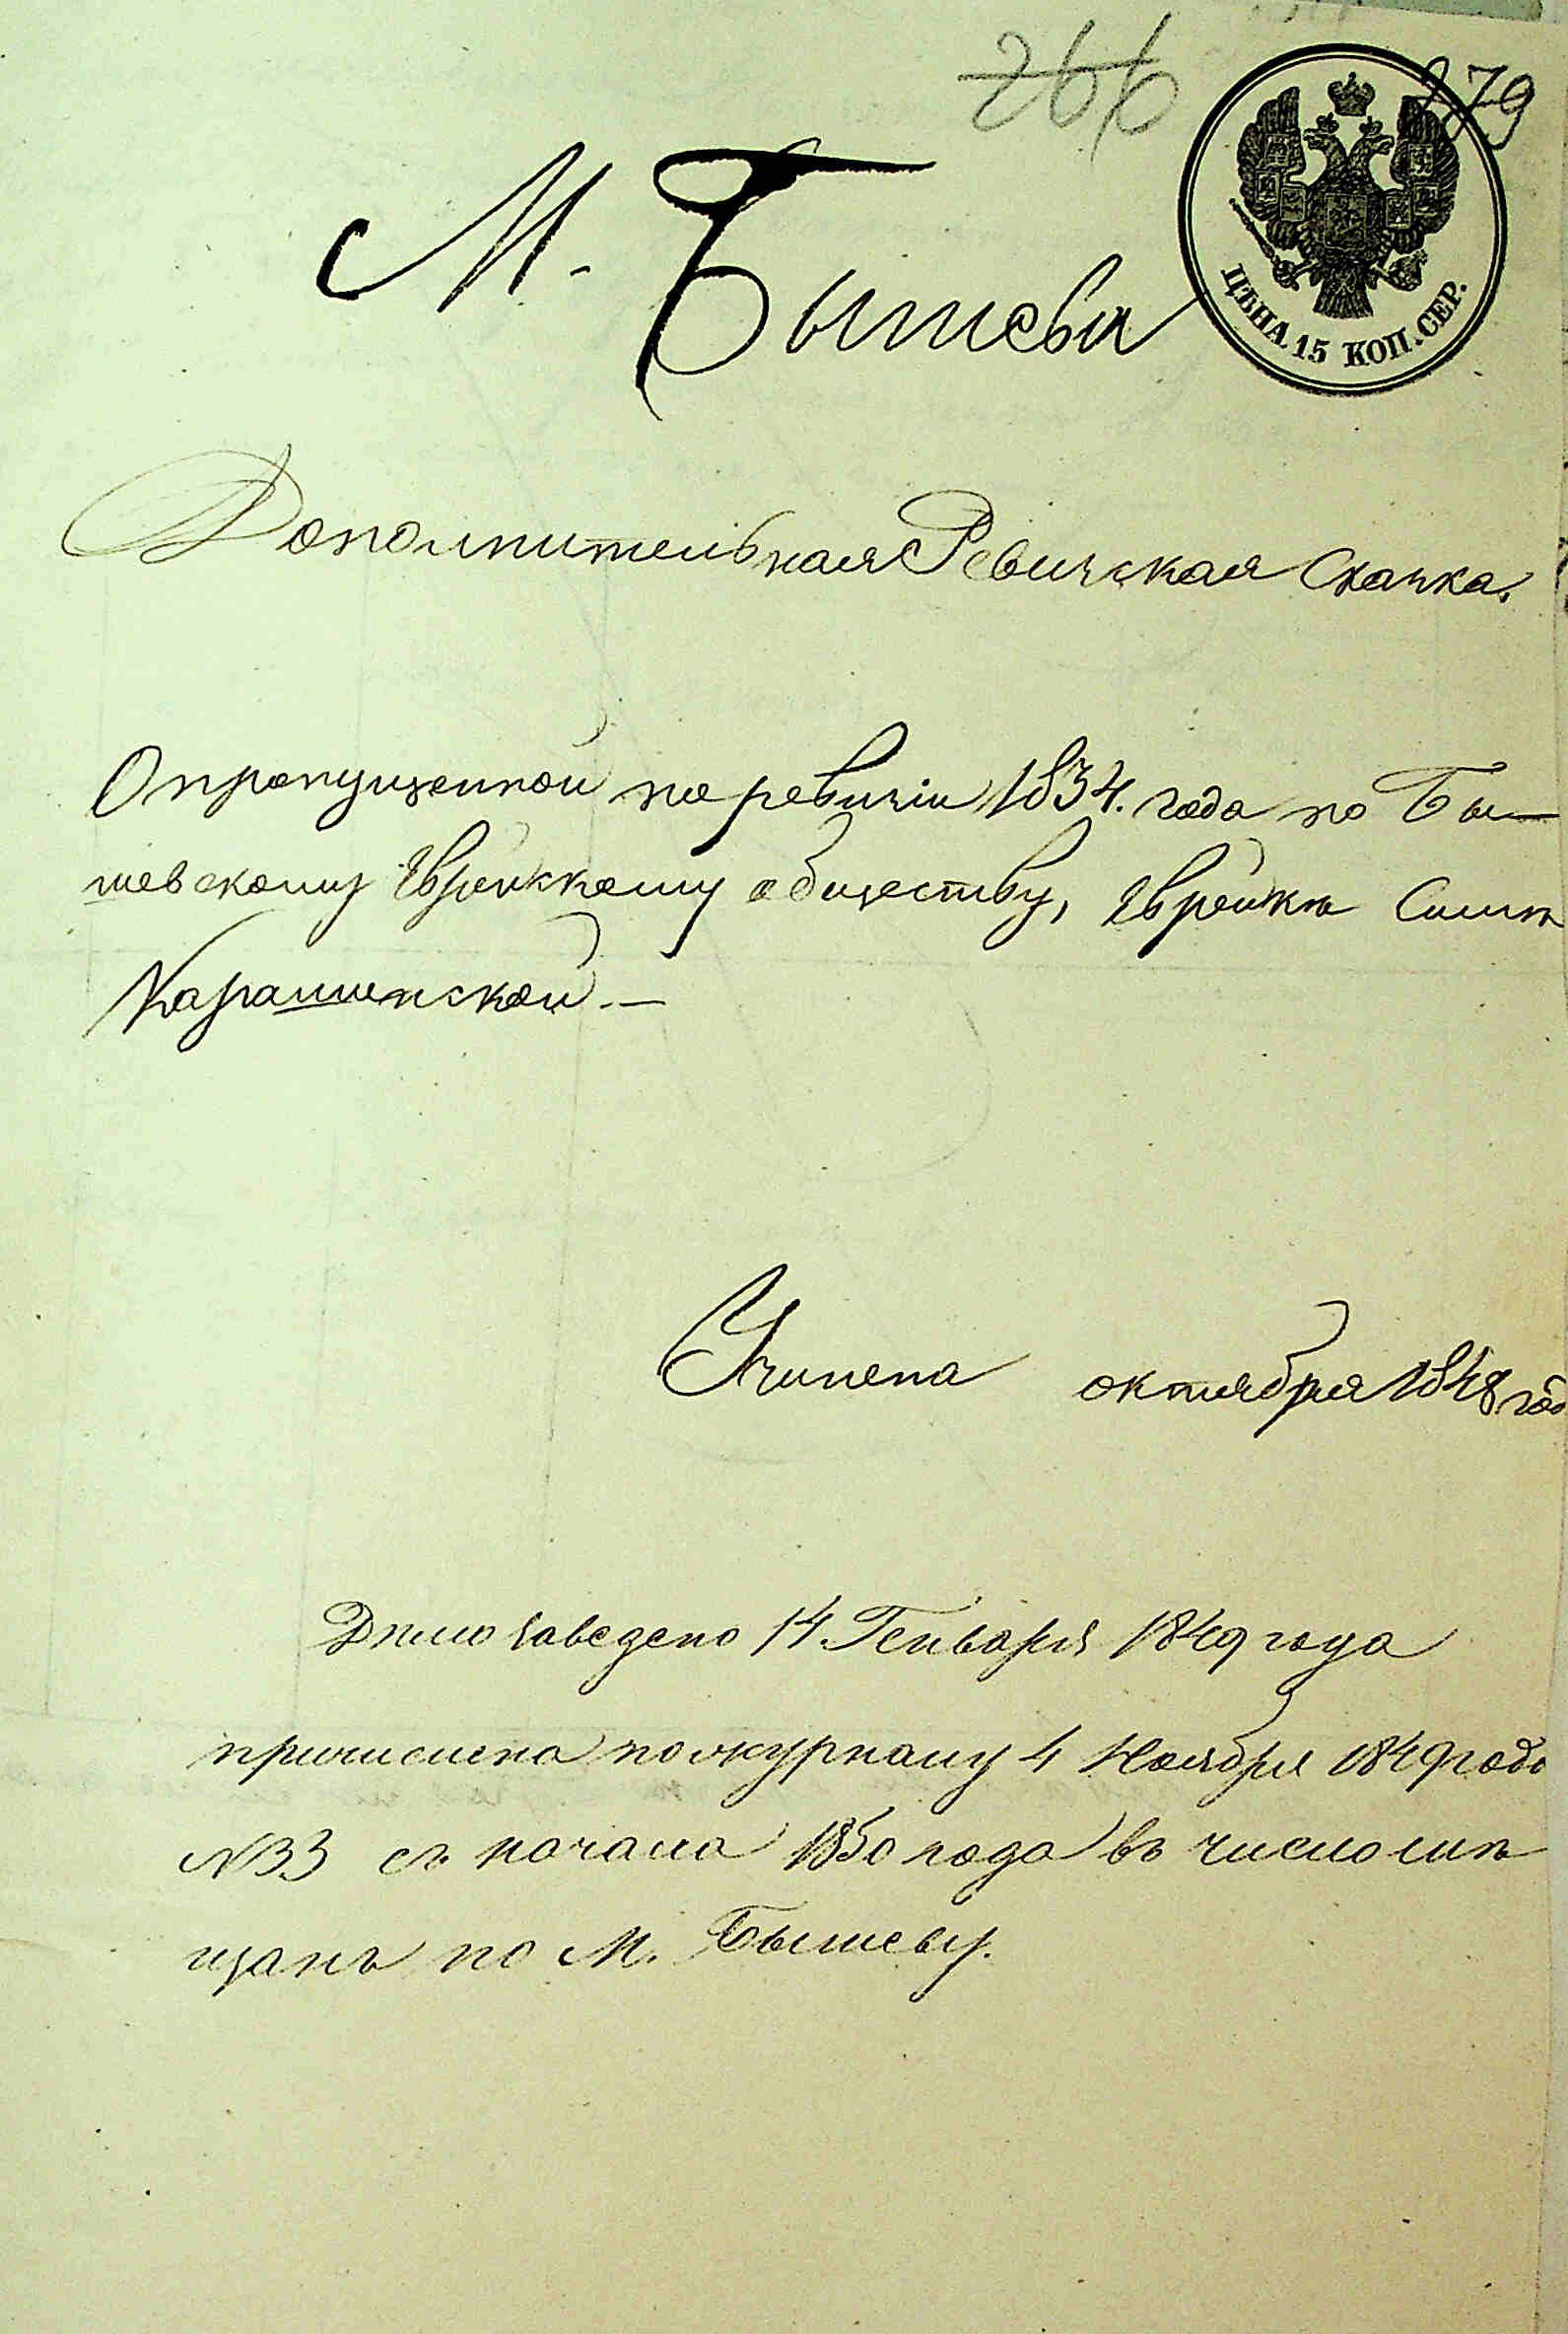 266
279
М. Бышевъ
ЦѢНА. 15 КОП. СЕР.
Дополнительная Ревизская Сказка.
О пропущенной по ревизіи 1834. года по Бы—
шевскому Еврейскому обществу, Еврейкѣ Симѣ
Карашинской. —
Учинена октября 1848 год
Дѣло заведено 14. Генваря 1849 года
причислена по журналу 4 Ноября 1849 года
№33 съ начала 1850 года въ число мѣ
щанъ по М. Бышеву.